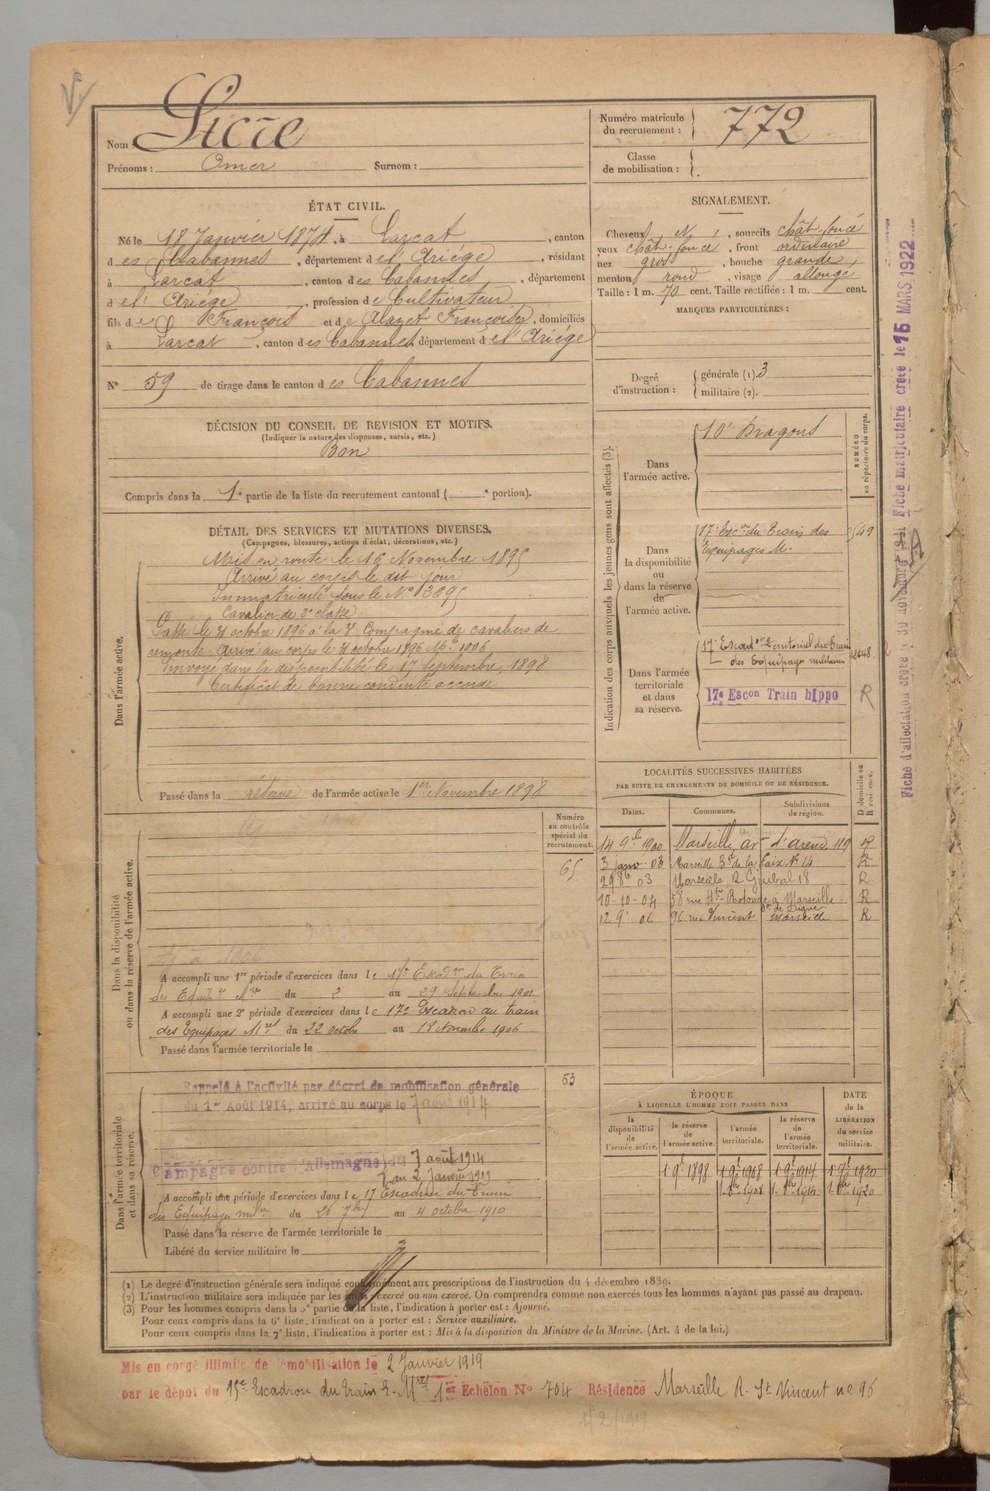 Nom Sicre
Prénoms : Omer Surnom :
Numéro matricule du recrutement : 772
Classe de mobilisation :
ÉTAT CIVIL.
Né le 18 Janvier 1874, à Larcat, canton
des Cabannes, département de l'Ariège, résidant
à Larcat, canton des Cabannes, département
de l'Ariège, profession de Cultivateur
fils de François et de Alazet Françoise, domiciliés
à Larcat, canton des Cabannes, département de l'Ariège
N° 59 de tirage dans le canton des Cabannes
SIGNALEMENT.
Cheveux N, sourcils chât. foncé
yeux chât. foncé, front ordinaire
nez gros, bouche grande
menton rond, visage allongé
Taille : 1 m. 70 cent. Taille rectifiée : 1 m. cent.
MARQUES PARTICULIÈRES :
Degré d'instruction : générale (1). 3
militaire (2).
DÉCISION DU CONSEIL DE REVISION ET MOTIFS.
(Indiquer la nature des dispenses, sursis, etc.)
Bon
Compris dans la 1e partie de la liste du recrutement cantonal ( e portion).
DÉTAIL DES SERVICES ET MUTATIONS DIVERSES.
(Campagnes, blessures, actions d'éclat, décorations, etc.)
Dans l'armée active.
Mis en route le 16 Novembre 1895
Arrivé au corps le dit jour
Immatriculé sous le N° 2895
Cavalier de 2e classe
Passé le 4 octobre 1896 à la 7e Compagnie de cavaliers de
remonte. Arrivé au corps le 4 octobre 1896 N° 1006
Envoyé dans la disponibilité le 17 Septembre 1898
Certificat de bonne conduite accordé
Passé dans la réserve de l'armée active le 1er Novembre 1898
Indication des corps auxquels les jeunes gens sont affectés (3).
NUMÉRO au répertoire du corps.
Dans l'armée active.
10e Dragons
Dans la disponibilité ou dans la réserve de l'armée active.
17e Escon du Train des
Equipages Mres
Dans l'armée territoriale et dans sa réserve.
17e Escadon Territorial du Train
des Equipages militaires
17e Escon Train hippo
R
Fiche d'affectation créée le 30 novembre
Fiche matriculaire créée le 15 MARS 1922
LOCALITÉS SUCCESSIVES HABITÉES
PAR SUITE DE CHANGEMENTS DE DOMICILE OU DE RÉSIDENCE.
Dates. Communes. Subdivisions de région. D domicile ou R résidence.
14 9bre 1900 Marseille, av. d'Arenc 119 R
3 janv. 03 Marseille Bd de la Paix N° 14 R
29 8bre 03 Marseille R. Guibal 18 R
10-10-04 58 rue Hte Rotonde à Marseille R
12 9e 06 96 rue St Vincent Marseille R
Dans la disponibilité ou dans la réserve de l'armée active.
Numéro au contrôle spécial du recrutement.
65
A accompli une 1re période d'exercices dans le 17e Escdon du Train
des Equip. Mres du 2 au 29 Septembre 1901
A accompli une 2e période d'exercices dans le 17e Escadron du train
des Equipages Mres du 22 octobre au 18 Novembre 1906
Passé dans l'armée territoriale le
Dans l'armée territoriale et dans sa réserve.
53
Rappelé à l'activité par décret de mobilisation générale
du 1er Août 1914, arrivé au corps le 7 août 1914
Campagne contre l'Allemagne du 7 août 1914
au 2 Janvier 1919
A accompli une période d'exercices dans le 17 Escadron du Train
des Equipages mres du 26 7bre au 4 octobre 1910
Passé dans la réserve de l'armée territoriale le
Libéré du service militaire le
ÉPOQUE
À LAQUELLE L'HOMME DOIT PASSER DANS
DATE de la LIBÉRATION du service militaire.
la disponibilité de l'armée active. la réserve de l'armée active. l'armée territoriale. la réserve de l'armée territoriale.
1 9e 1898 1 9e 1908 1 9e 1914 1 9e 1920
1-8b-1908 1-8b-1914 1 8b 1920
(1) Le degré d'instruction générale sera indiqué conformément aux prescriptions de l'instruction du 4 décembre 1889.
(2) L'instruction militaire sera indiquée par les mots exercé ou non exercé. On comprendra comme non exercés tous les hommes n'ayant pas passé au drapeau.
(3) Pour les hommes compris dans la 5e partie de la liste, l'indication à porter est : Ajourné.
Pour ceux compris dans la 6e liste, l'indication à porter est : Service auxiliaire.
Pour ceux compris dans la 7e liste, l'indication à porter est : Mis à la disposition du Ministre de la Marine. (Art. 4 de la loi.)
Mis en congé illimité de démobilisation le 2 Janvier 1919
par le dépôt du 15e Escadron du train E. Mres 1er Echelon N° 704 Résidence Marseille R. St Vincent n° 96